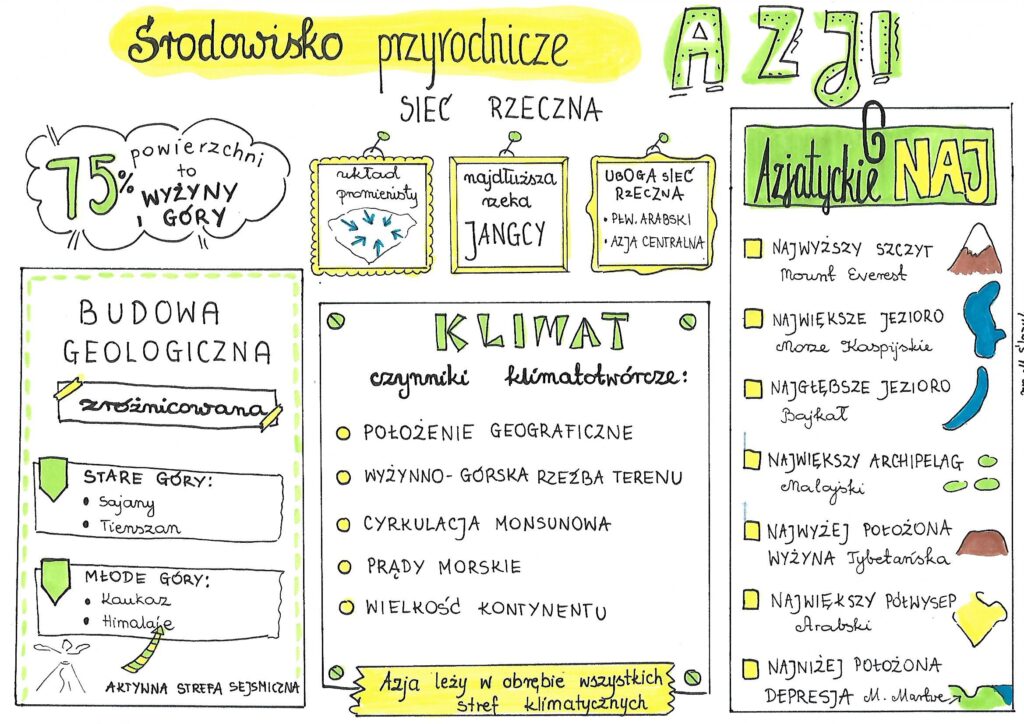 Środowisko przyrodnicze AZJI
SIEĆ RZECZNA
75% powierzchni
to
WYŻYNY
I GÓRY
układ
promienisty
najdłuższa
rzeka
JANGCY
UBOGA SIEĆ
RZECZNA
• PŁW. ARABSKI
• AZJA CENTRALNA
BUDOWA
GEOLOGICZNA
zróżnicowana
STARE GÓRY:
• Sajany
• Tienszan
MŁODE GÓRY:
• Kaukaz
• Himalaje
AKTYWNA STREFA SEJSMICZNA
KLIMAT
czynniki klimatotwórcze:
POŁOŻENIE GEOGRAFICZNE
WYŻYNNO-GÓRSKA RZEŹBA TERENU
CYRKULACJA MONSUNOWA
PRĄDY MORSKIE
WIELKOŚĆ KONTYNENTU
Azja leży w obrębie wszystkich
stref klimatycznych
Azjatyckie NAJ
NAJWYŻSZY SZCZYT
Mount Everest
NAJWIĘKSZE JEZIORO
Morze Kaspijskie
NAJGŁĘBSZE JEZIORO
Bajkał
NAJWIĘKSZY ARCHIPELAG
Malajski
NAJWYŻEJ POŁOŻONA
WYŻYNA Tybetańska
NAJWIĘKSZY PÓŁWYSEP
Arabski
NAJNIŻEJ POŁOŻONA
DEPRESJA M. Martwe